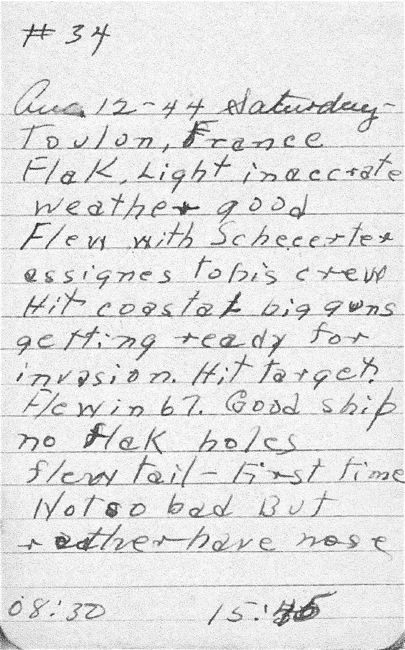 # 34
Aug 12-44 Saturday-
Toulon, France
Flak, Light inaccrate
weather good
Flew with Scheerter
assignes to his crew
Hit coastal big guns
getting ready for
invasion. Hit target.
Flew in 67. Good ship
no flak holes
flew tail - First time
Not so bad But
rather have nose
08:30 15:45